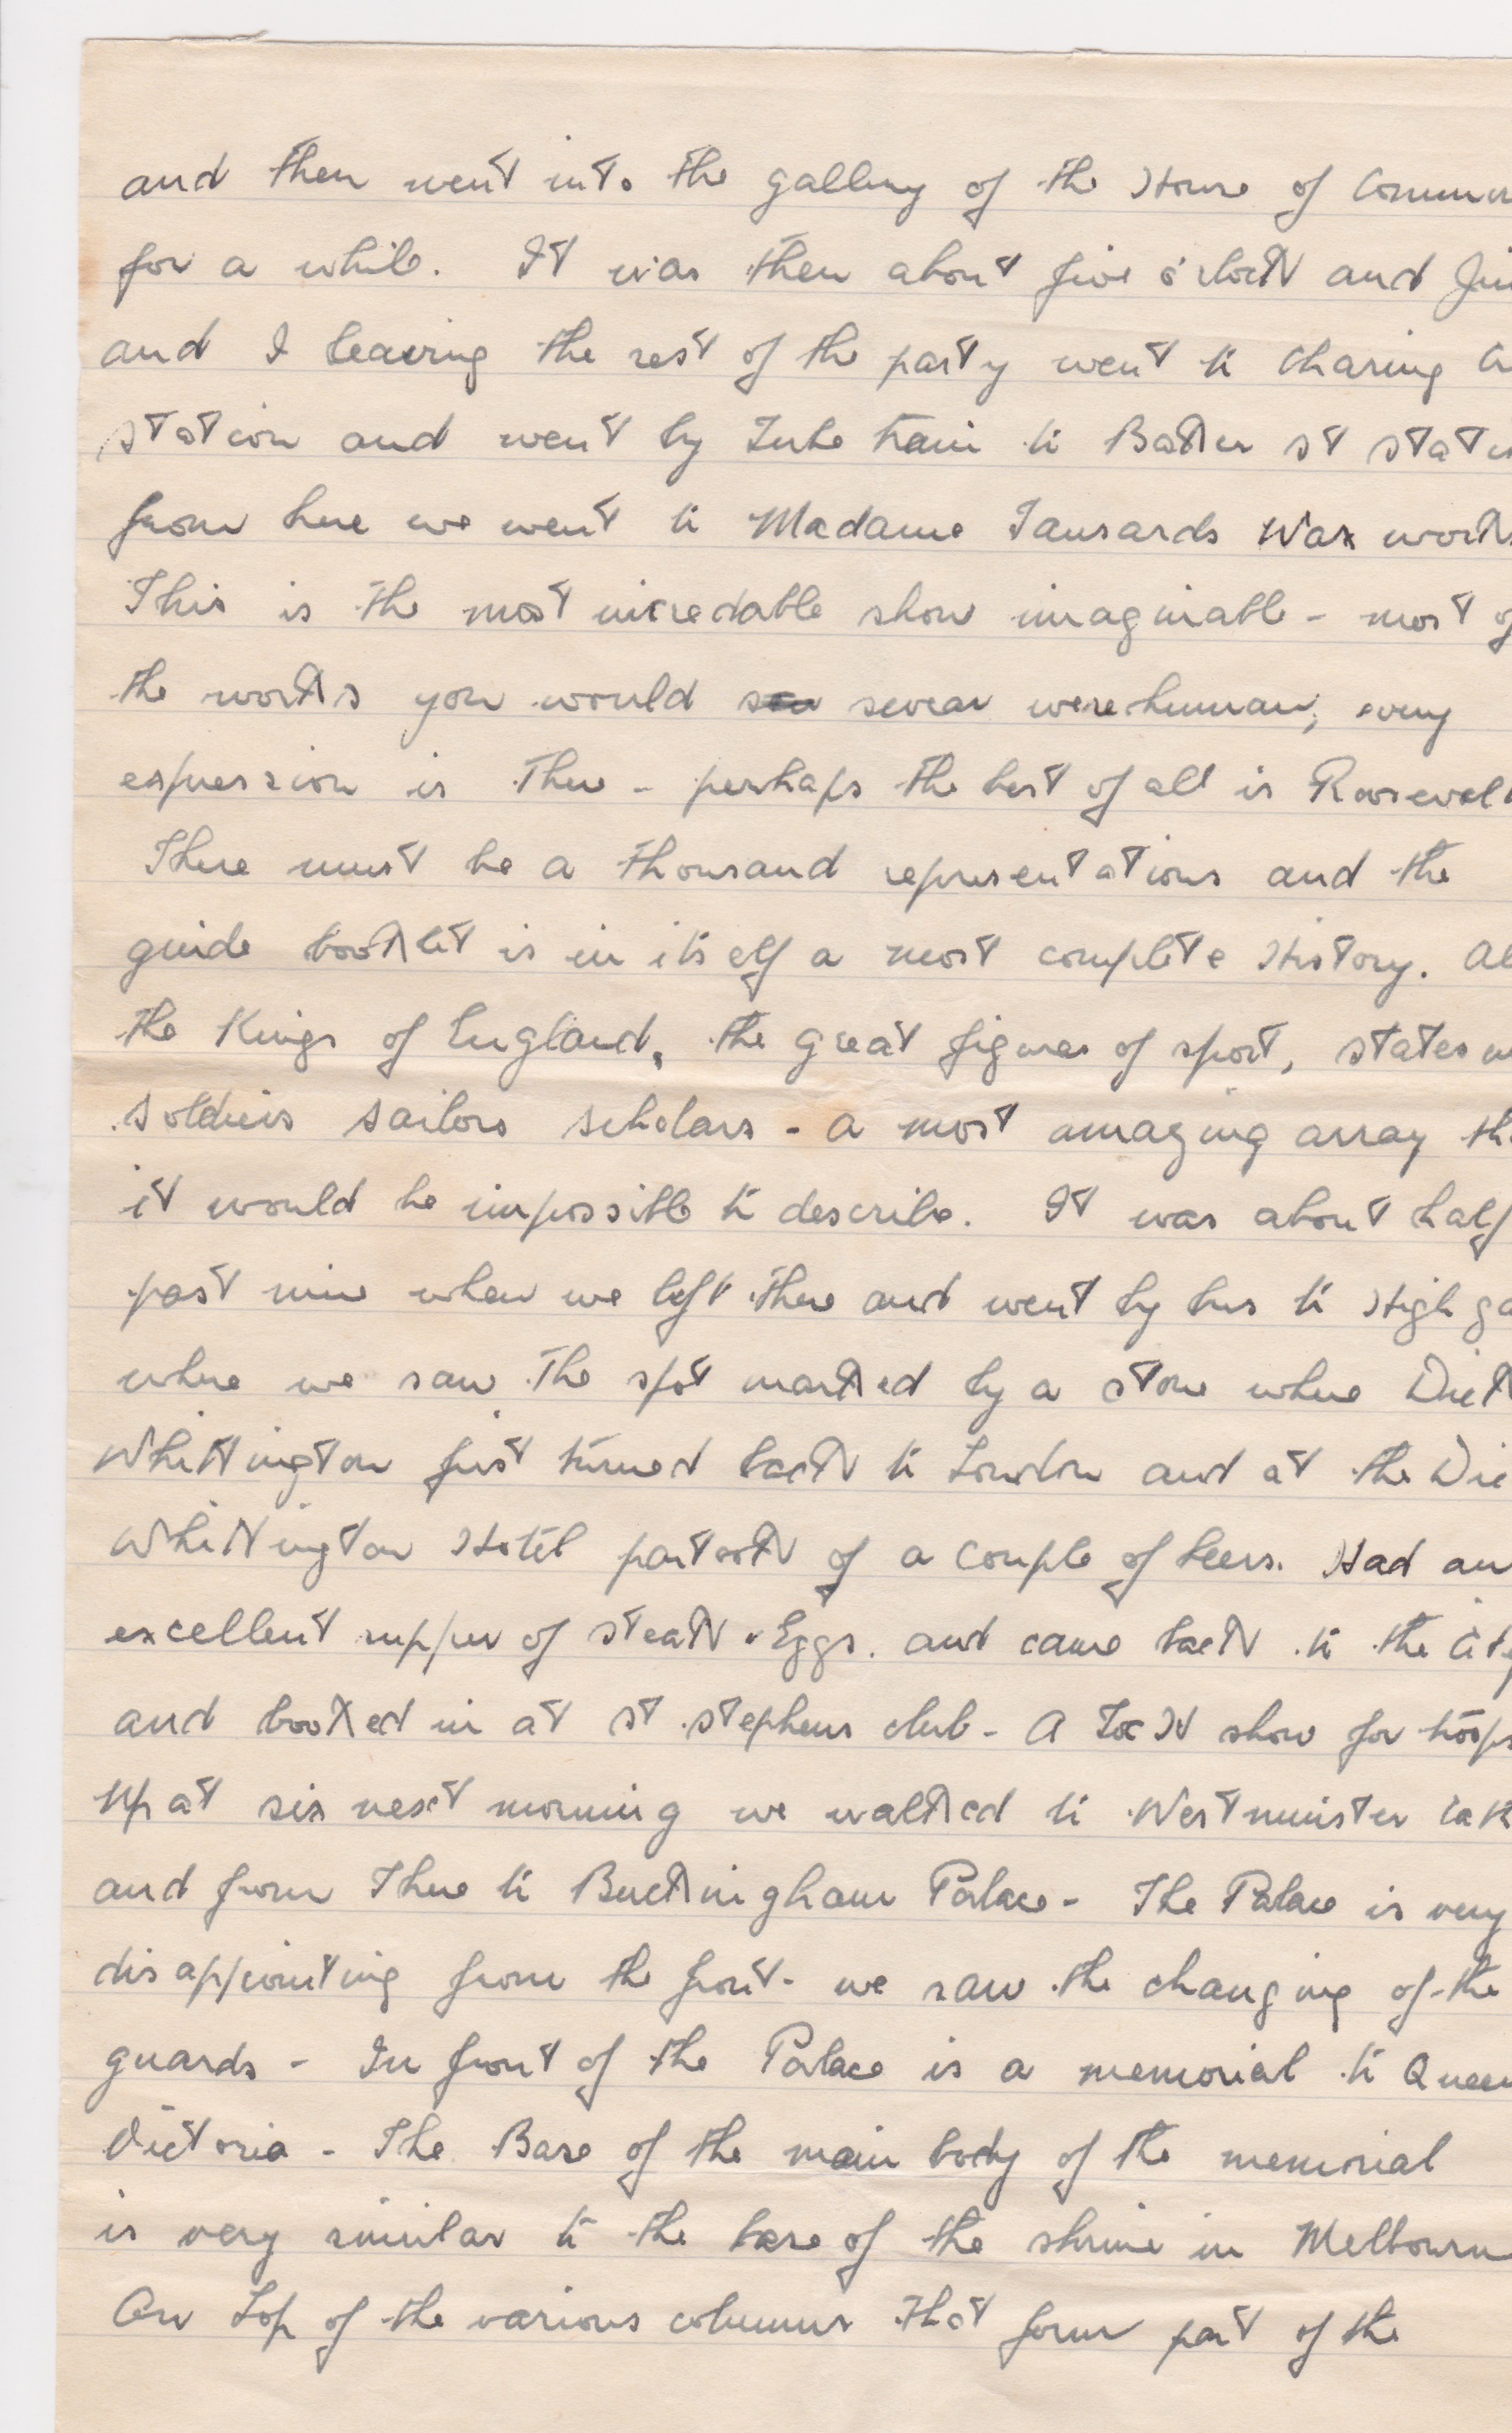 and then went into the gallery of the House of Common
for a while. It was then about five o'clock and Jim
and I leaving the rest of the party went to Charing C
station and went by Tube train to Baker st statio
from here we went to Madame Tausards Wax works
This is the most incredable show imaginable - most of
the works you would swear were human, every
expression is there - perhaps the best of all is Roosevel
There must be a thousand representations and the
guide booklet is in itself a most complete History. Al
the Kings of England, the great figures of sport, statesm
soldiers sailors scholars - a most amazing array th
it would be impossible to describe. It was about half
past nine when we left there and went by bus to High ga
where we saw the spot marked by a stone where Dick
Whittington first turned back to London and at the Dic
Whittington Hotel partook of a couple of beers. Had an
excellent supper of steak & Eggs. and came back to the City
and booked in at St Stephens club - A Toc H show for troops
Up at six next morning we walked to Westminster Cath
and from there to Buckingham Palace - The Palace is very
disappointing from the front - we saw the changing of the
guards - In front of the Palace is a memorial to Queen
Victoria - The Base of the main body of the memorial
is very similar to the base of the shrine in Melbourn
On top of the various columns that form part of the